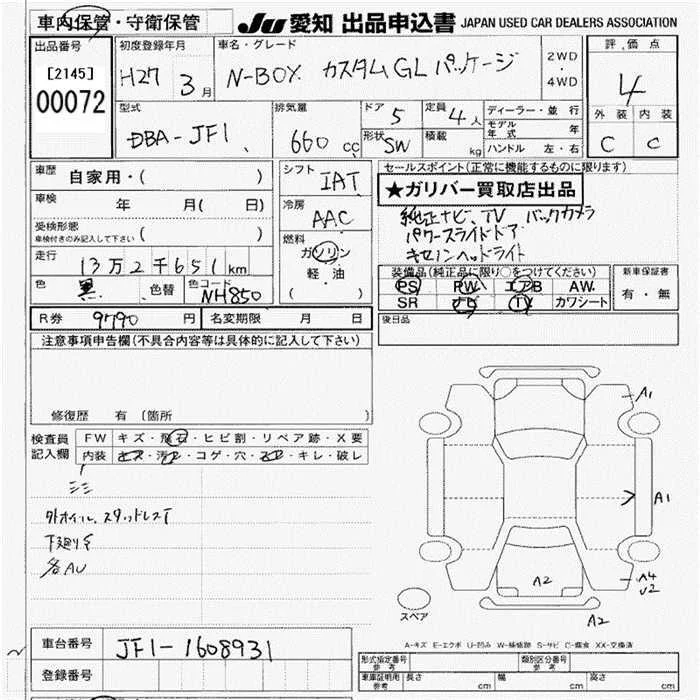 車内保管・守衛保管 JU 愛知 出品申込書 JAPAN USED CAR DEALERS ASSOCIATION
出品番号 [2145] 00072
初度登録年月 H27 3月
車名・グレード N-BOX カスタムGLパッケージ 2WD・4WD
評価点 4
外装 内装
C C
型式 DBA-JF1
排気量 660 cc
ドア 5 定員 4人
形状 SW 積載 kg
ディーラー・並行
モデル年式 年
ハンドル 左・右
車歴 自家用・( )
車検 年 月( 日)
受検形態 車検付きのみ記入して下さい ( )
走行 13万2千651km
色 黒 色替 色コード NH850
シフト IAT
冷房 AAC
燃料 ガソリン 軽油 ( )
セールスポイント(正常に機能するものに限ります)
★ガリバー買取店出品
純正ナビ、TV バックカメラ
パワースライドドア
キセノンヘッドライト
装備品(純正品に限り○をつけてください)
PS PW エアB AW
SR ナビ TV カワシート
新車保証書
有・無
後日品
R券 9790円 名変期限 月 日
注意事項申告欄(不具合内容等は具体的に記入して下さい)
修復歴 有(箇所 )
検査員記入欄
FW キズ・飛石・ヒビ割・リペア跡・X要
内装 キズ・汚レ・コゲ・穴・スレ・キレ・破レ
外ホイル、スタッドレスT
下廻りS
各AU
A1
A1
A4
U2
A2
A2
スペア
A-キズ E-エクボ U-凹み W-補修跡 S-サビ C-腐食 XX-交換済
車台番号 JF1-1608931
登録番号
形式指定番号 参考 類別区分番号 参考
車庫証明用 参考 長さ cm 幅 cm 高さ cm